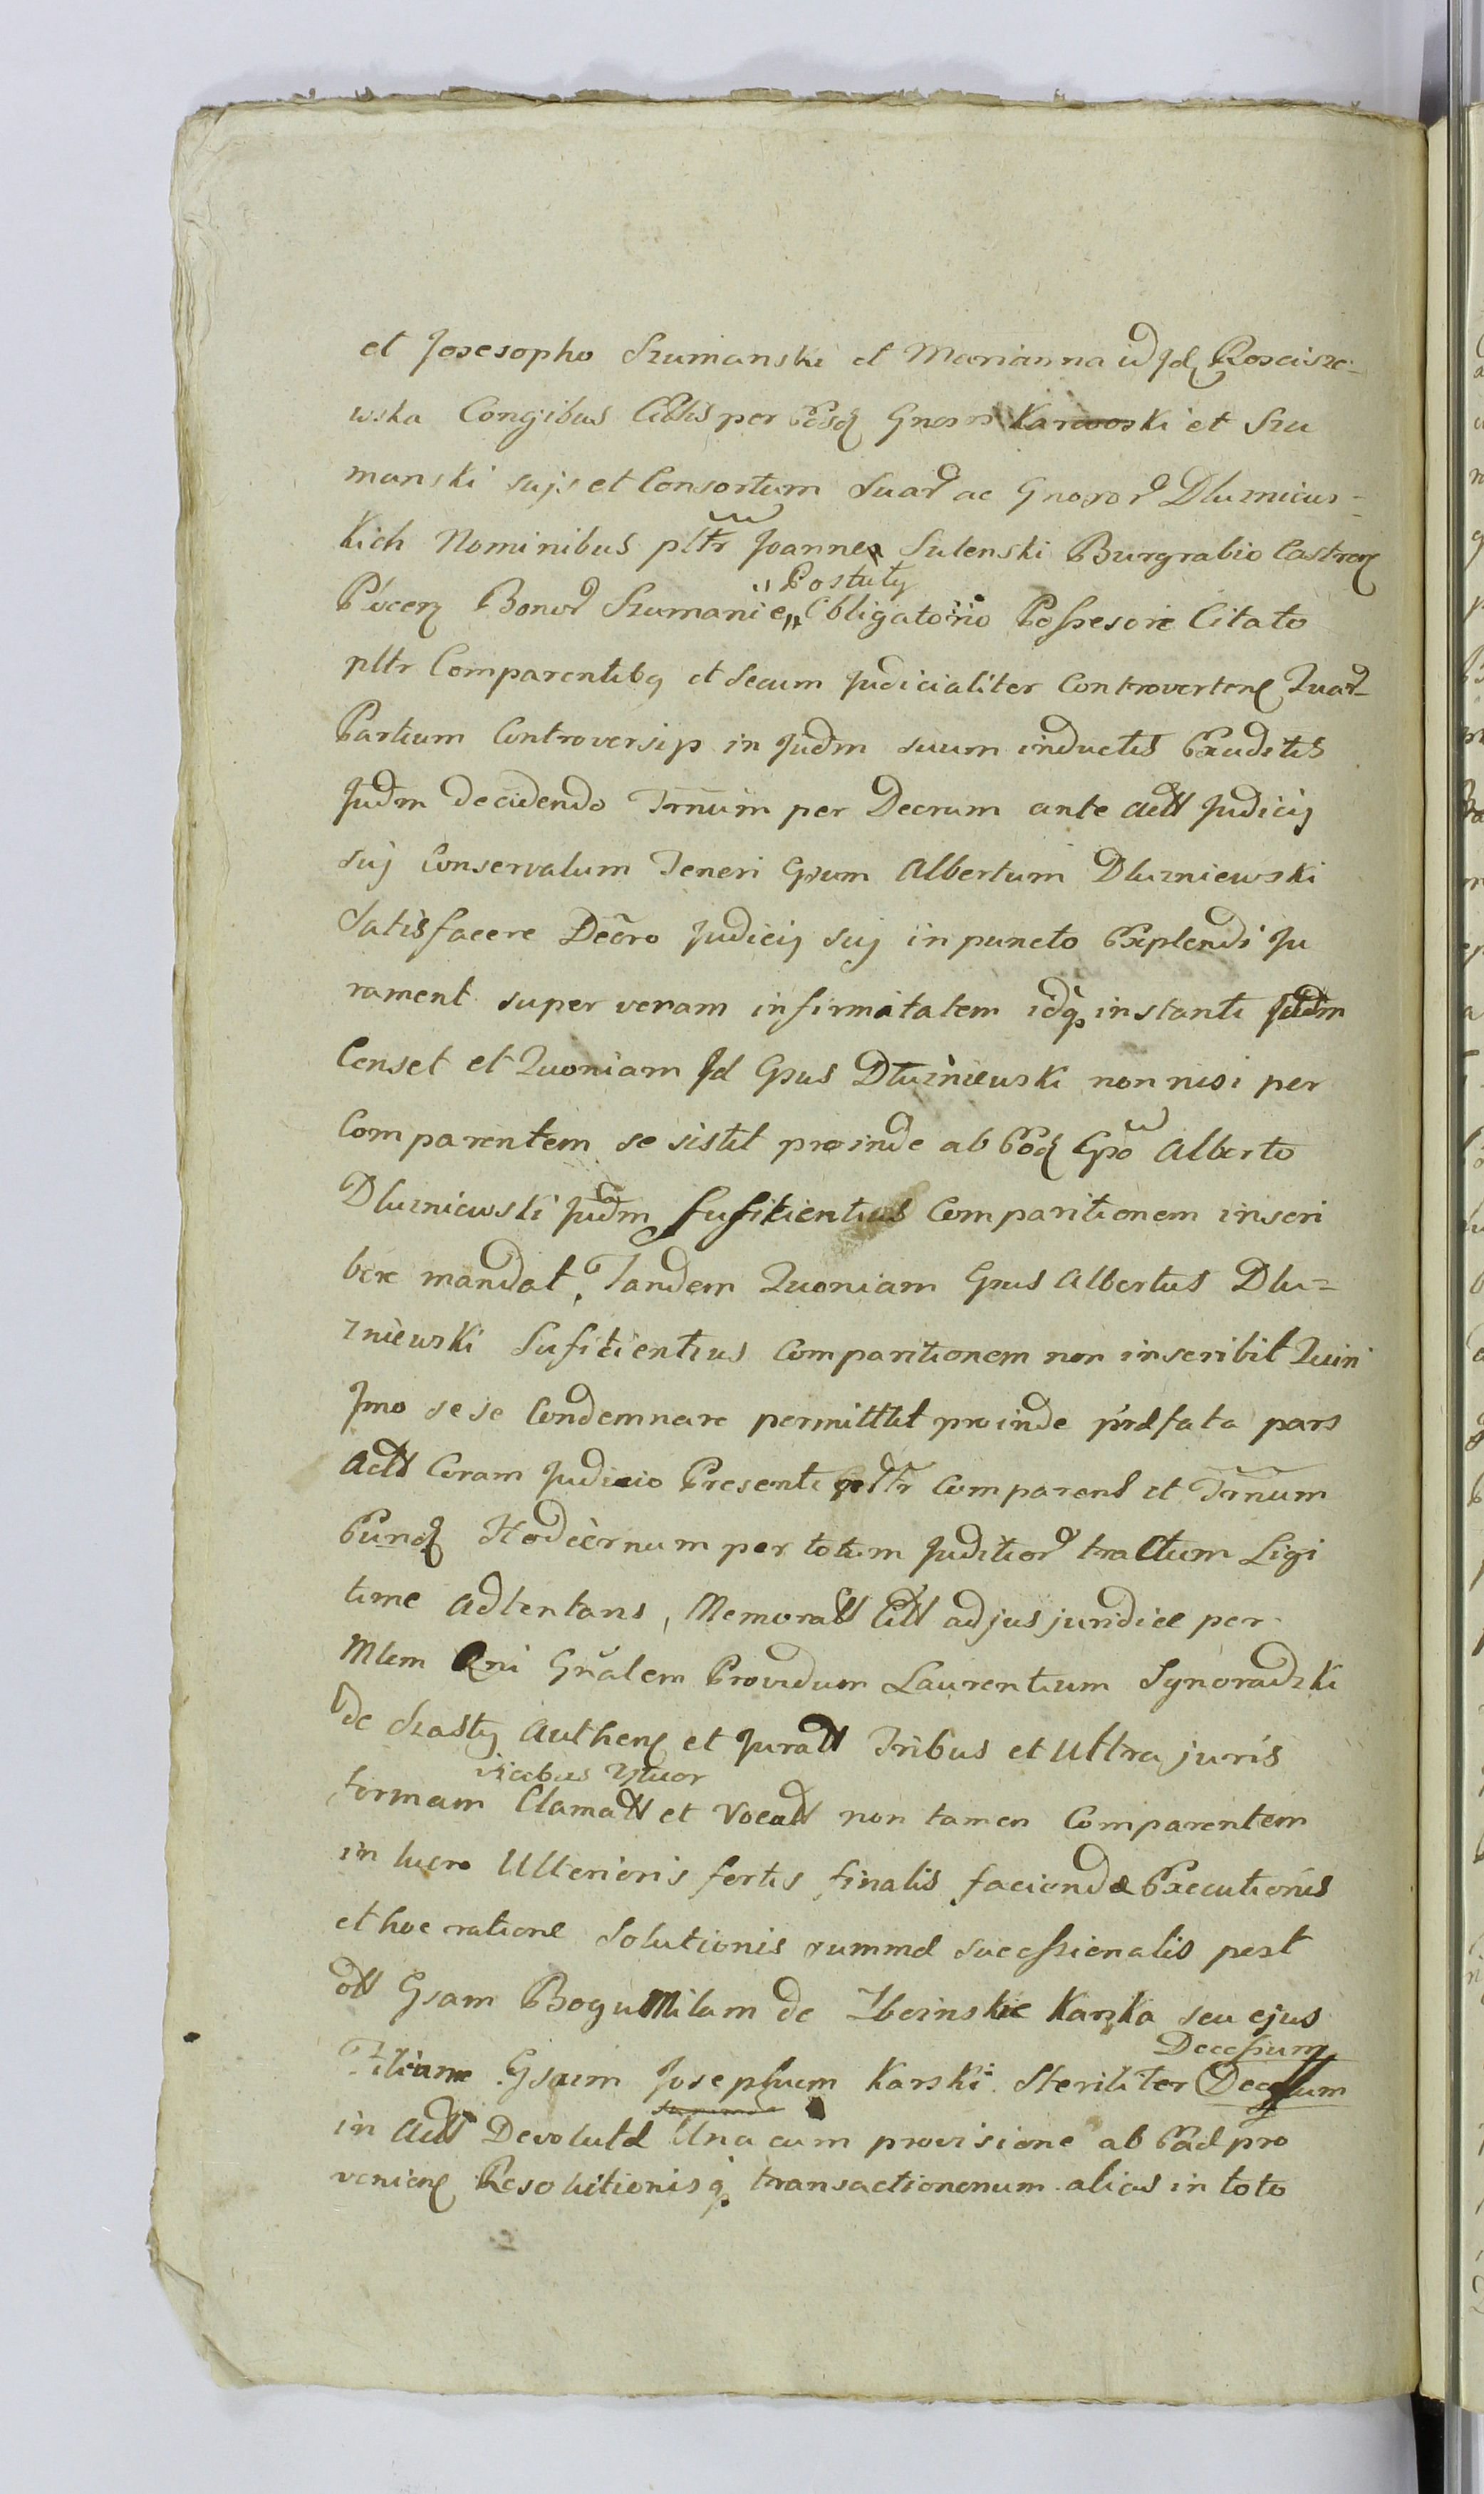 et Josesopho Szumanski et Marianna Rosciszе-
wska Congibus Citatis per Gnosos Karwoski et Szu
manski sujs et Consortum Suar ac Gnosor Dluzniews-
kich Nominibus pltr Joanne Sulenski Burgrabio Castren
Plocen Bonor Szumanie „ Postuly
„ Obligatorio Possesore Citato
pltr Comparentibq et Secum Judicialiter Controverten Quar
Partium Controversijs in Judm suum inductis Exuditis
Judm decidendo Trnum per Decrum ante Actt Judicij
suj Conservatum Teneri Gsum Albertum Dluzniewski
Satisfacere Decro Judicij suj in puncto Explendi Ju
rament super veram infirmitatem idq instanti Judm
Censet et Quoniam Jd Gsus Dluzniewski non nisi per
Comparentem se sistit proinde ab Eod Gso Alberto
Dluzniewski Judm sufitientius Comparitionem inscri
bere mandat, Tandem Quoniam Gsus Albertus Dlu=
zniewski Sufitientius Comparitionem non inscribit Quin
Jmo se se Condemnare permittit proinde præfata pars
Actt Coram Judicio Presenti pltr Comparens et Trnum
Eund Hodiernum per totum Juditior tractum Ligi
time Adtentans, Memoratt Citt ad jus juridice per
Mlem Rni Gnalem Providum Laurentium Synoradzki
de Szasty Authen et Juratt Tribus et Ultra juris
formam vicibus qtuor
Clamatt et Vocatt non tamen Comparentem
in lucro Ulterioris fortis finalis faciendæ Executionis
et hoc ratione Solutionis summæ sucessionalis post
ott Gsam Bogumilam de Zboinskie Karska seu ejus
Filiam Gsum Josephum Karski Steriliter Decessum
Decessum
in Actt Devolutæ Una cum provisione ab Ead pro
venien Resolutionisq transactionenum alias in toto